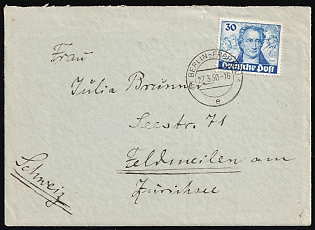 30
Deutsche Post
BERLIN-FROH
27.3.50-16
e
Frau
Julia Brunner
Seestr. 71
Feldmeilen am
Zürichsee
Schweiz